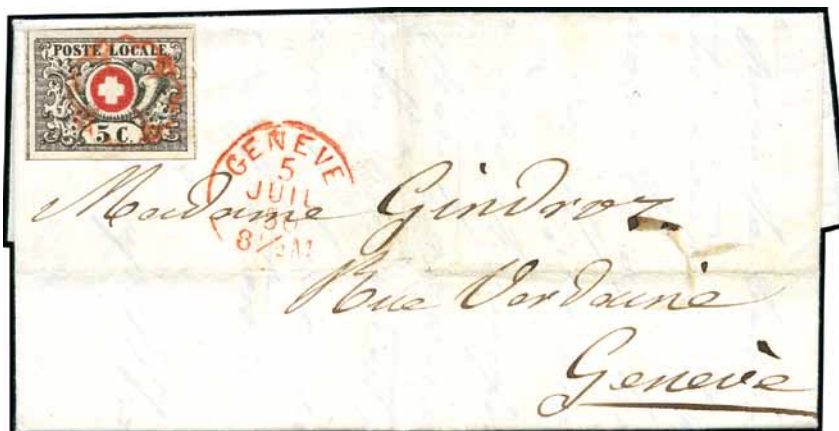 POSTE LOCALE
5 C.
GENEVE
5
JUIL
50
8½M
Madame Gindroz
Rue Verdaine
Genève